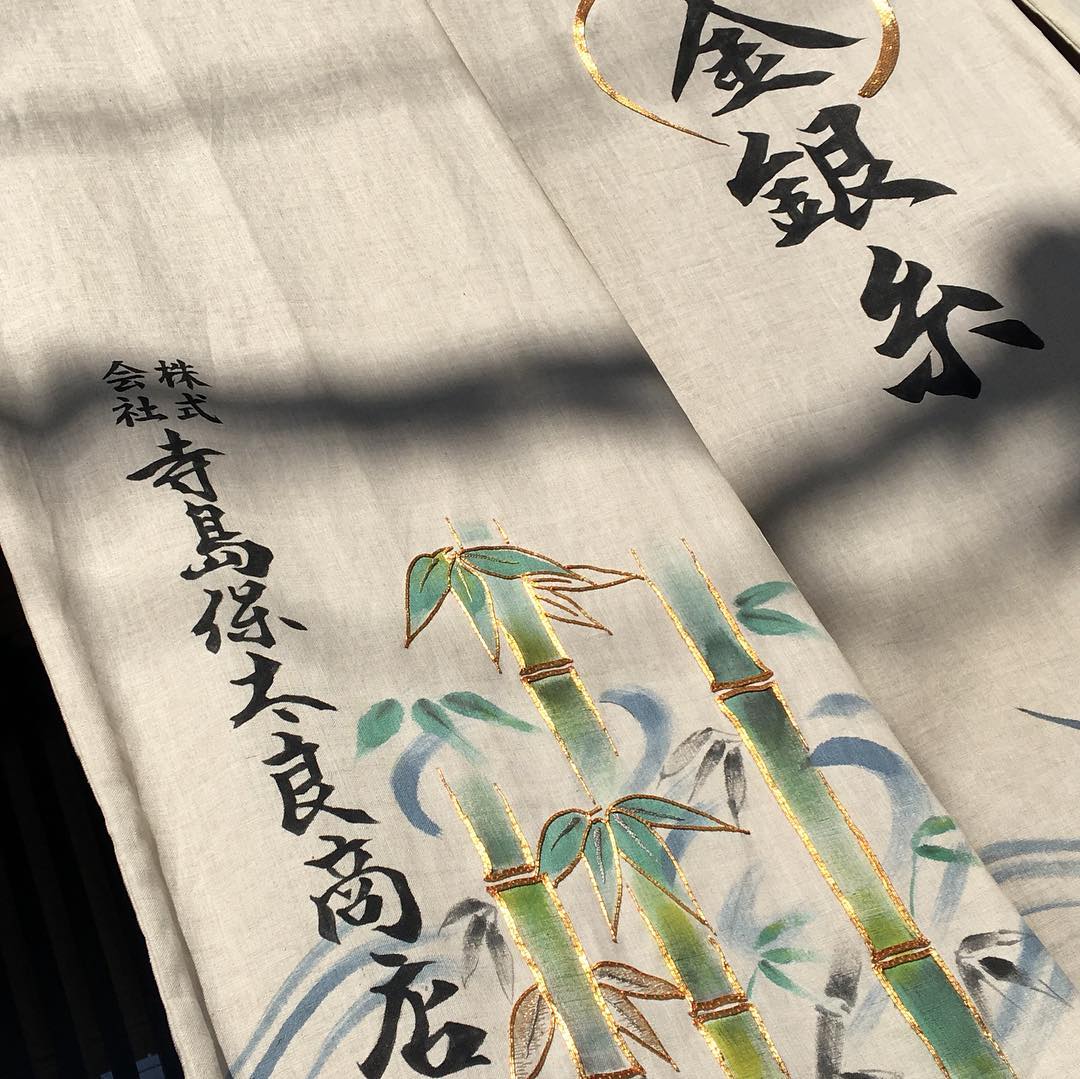 金銀糸
株式
会社
寺島保太良商店